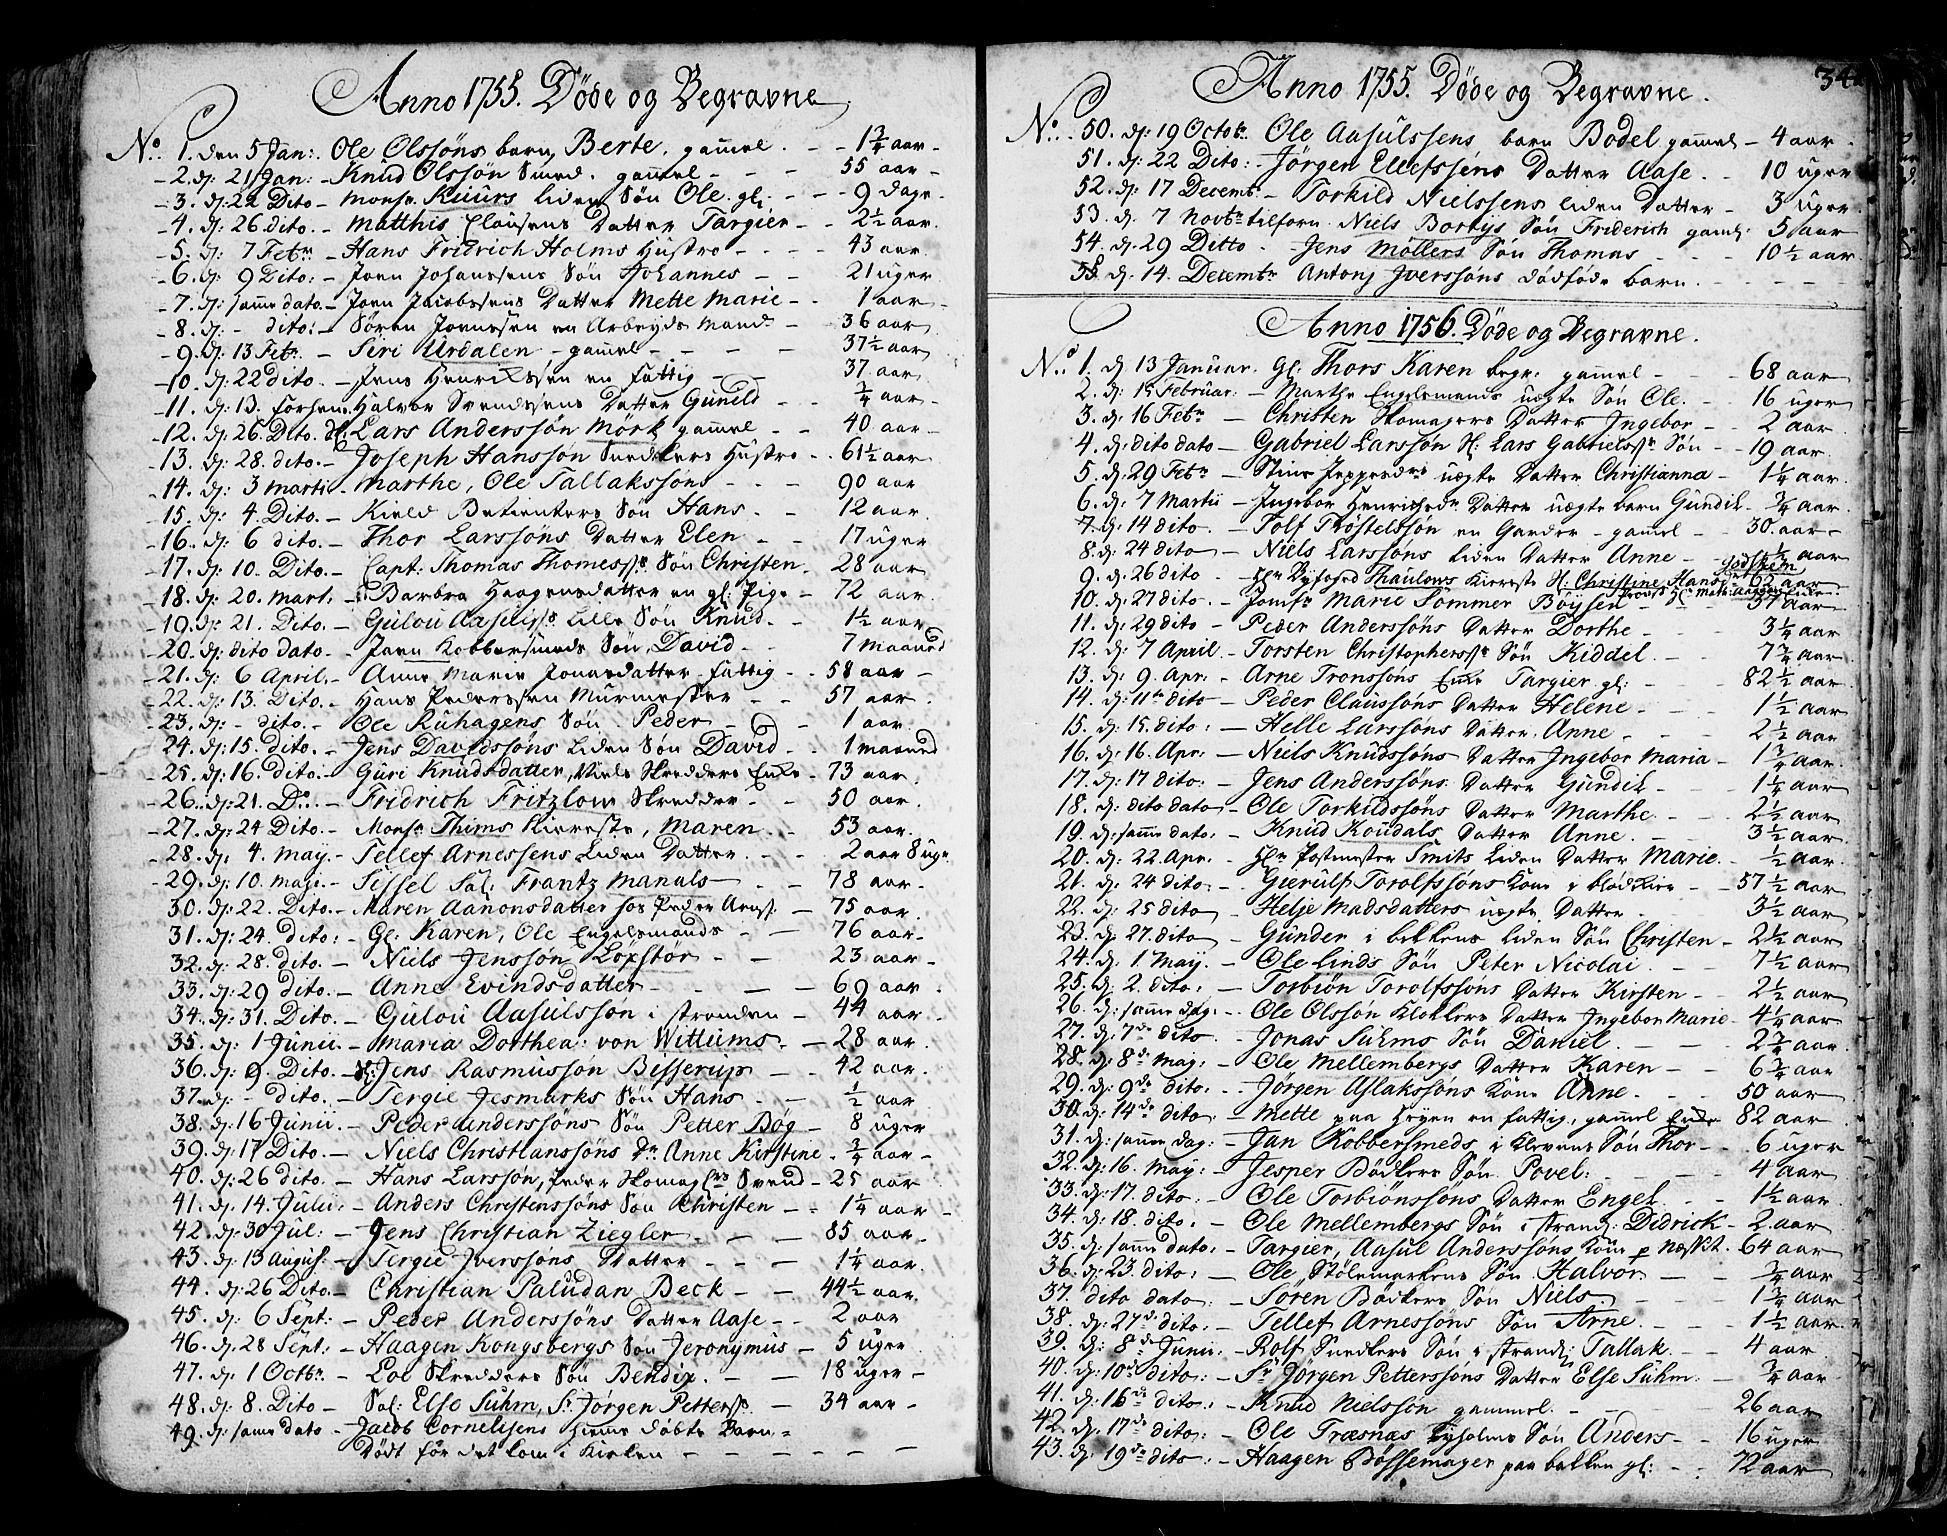 Anno 1755. Døde og Begravne
No. 1. den 5 Jan: Ole Olssøns barn Berte, gamel - 1 3/4 aar
2. d: 21 Jan: - Knud Olssøn Smed. gamel - 55 aar
3. d: 22 Dito - Monsr. Kuurs liden Søn Ole. gl: - 9 dage
4. d: 26 dito. - Matthis Clausens Datter Targier - 2 1/2 aar.
5. d: 7 Febr. - Hans Fridrich Holms Hustro - 43 aar
6. d: 9 Dito: - Jørn Johanssens Søn Johannes - 21 uger
7. d: samme dato. - Jørn Jacobssens Datter Mette Marie - 1 aar
8. d: - dito: - Søren Joenssen en Arbeyds mand - 36 aar
9. d: 13 Febr. - Siri Urdalen - gamel - 37 1/2 aar
10. d: 22 dito. - Jens Henrikssen en fattig - 37 aar
11. d: 13. Halvor Svendssens Datter Guneld - 3/4 aar
12. d: 26. Dito. Lars Anderssøn Mørk gamel - 40 aar
13. d: 28. dito. - Joseph Hanssøn Snedkers Hustro - 61 1/2 aar
14. d: 3 Marti - Marthe, Ole Tallakssøns - 90 aar
15. d: 4 Dito. - Kield Betienters Søn Hans - 12 aar
16. d: 6 dito. - Thor Larssøns Datter Elen - 17 uger
17. d: 10. Dito. - Capt: Thomas Thomess. Søn Christen - 28 aar
18. d: 20. Mart: - Barbra Haagensdatter en gl: Pige - 72 aar
19. d: 21. Dito. - Gulou Aasulss. lille Søn Knud. - 1 1/2 aar
20. d: dito dato - Jørn Kobbersmeds Søn, David - 7 maaned
21. d: 6 April. - Anne Marie Jonasdatter Fattig - 58 aar
22. d: 13. Dito. - Hans Pederssen Murmester - 57 aar
23. d: - dito. - Ole Ruhagens Søn. Peder - 1 aar
24. d: 15. dito. - Jens Davidssøns liden Søn David - 1 maaned
25. d: 16. Dito: - Guri Knudsdatter, Niels Skredders Enke - 73 aar
26. d: 21. Do. - Fridrich Fritzlow Skredder - 50 aar
27. d: 24 Dito. - Monsr Thims Kiereste, Maren - 53 aar
28. d: 4. May. - Tellef Arnessens liden Datter - 2 aar 8 uger
29. d: 10. may. - Sissel Sal: Frantz Manuls - 78 aar
30. d: 22. Dito. - Maren Aanonsdatter hos Peder - 75 aar
31. d: 24. dito: - Gl: Karen, Ole Engelsmands - 76 aar
32. d: 28. dito. - Niels Jenssøn Løxstør - 23 aar
33. d: 29 dito. - Anne Evindsdatter - 69 aar
34. d: 31. Dito. - Gulou Aasulssøn i stranden - 44 aar
35. d: 1 Junii. - Maria Dorthea: von Wittums - 28 aar
36. d: 9. Dito - Jens Rasmussøn Besserup - 42 aar
37. d: - dito. - Tergie Jesmarks Søn Hans - 1/2 aar
38. d: 16 Junii. - Peder Anderssøns Søn Petter Bøg - 8 uger
39. d: 17 Dito. - Niels Christianssøns Dr. Anne Kirstine - 3/4 aar
40. d: 26 dito. - Hans Larssøn, Peder Skomag Svend - 25 aar
41. d: 14. Julii: - Anders Christenssøns Søn Christen - 1 1/4 aar
42. d: 30 Jul: - Jens Christian Ziegler - 85 aar
43. d: 13 August: - Tergie Iverssøns Datter - 1 1/4 aar
44. d: 26 Dito. - Christian Paludan Beck - 44 1/2 aar
45. d: 6 Sept: - Peder Anderssøns Datter Aase - 2 aar
46. d. 28 Sept: - Haagen Kongsbergs Søn Jeronymus - 5 uger
47. d: 1 Octbr. - Lol Skredders Søn Bendix. - 18 uger
48. d: 8. Dito - Sal: Else Suhm, Sr. Jørgen Petterss. - 34 aar
49. d: samme dato - Jacob Cornelisens hieme døbte Barn
Dødt før det kom i Kirken
Anno 1755. Døde og Begravne.
34
No. 50. d: 19 Octobr. Ole Aasulssens barn Bodel gamel - 4 aar
51. d: 22 Dito: Jørgen Ellefssens Datter Aase. - 10 uger
52. d: 17 Decemb. - Torkild Nielssens liden Datter - 3 uger
53. d. 7 Novbr. tilforn. Niels Børtys Søn Friderich gamel: 5 aar
54. d. 29 Ditto. Jens Møllers Søn Thomas - 10 1/2 aar
55. d: 14. Decembr. Antonj Iverssøns dødføde barn.
Anno 1756. Døde og Begravne.
No. 1. d 13 Januar. Gl: Thors Karen begr: gamel - 68 aar
2. d: 15 Februar: - Marthe Engelsmands uægte Søn Ole. - 16 uger
3. d: 16 Febr. - Christen Skomagers Datter Ingebor - 2 aar
4. d: dito dato - Gabriel Larssøn Lars Gabrielss. Søn - 19 aar
5. d: 29 Febr. - Stine Jeppesdr. uægte Datter Christianna - 1 1/4 aar
6. d: 7 Martii - Ingebor Henrichsdr. Datter uægte barn Gundil - 3/4 aar
7. d: 14 dito. - Tolf Tøsteltsøn en Garder - gamel - 30 aar
8. d: 24 dito - Niels Larssøns liden Datter Anne - 1/2 aar
9. d. 26 dito. - Hr. Byfoged Thaulows Kiereste Christine Hans - 62 aar
10. d: 27 dito. - Jomfr Marie Sommer Bøysen - 37 aar
11. d: 29 dito - Peder Anderssøns Datter Dorthe - 3 1/4 aar
12. d: 7 April. - Torsten Christopherss. Søn Kiddel - 7 3/4 aar
13. d: 9. Apr: - Arne Tronssøns Enke Targier gl: - 82 1/2 aar
14. d: 11te dito - Peder Claussøns Datter Helene - 1 1/2 aar
15. d: 15. dito: - Helle Larssøns Datter. Anne - 2 1/2 aar
16. d: 16. Apr: - Niels Knudssøns Datter Ingebor Maria - 1 3/4 aar
17. d: 17 dito: - Jens Anderssøns Datter Gundil - 1 1/4 aar
18. d: dito dato - Ole Torkildssøns Datter Marthe - 2 1/2 aar
19. d: samme dato: - Knud Koudals Datter Anne - 3 1/2 aar
20. d: 22 Apr. - Hr Postmester Smits liden Datter Marie - 1/2 aar
21. d: 24 dito - Gierulf Torolfssøns Kone i blødKier - 57 1/2 aar
22. d: 25 dito - Helje Madsdatters uægte Datter - 3 1/2 aar
23. d: 27. dito - Gunder i bekkens liden Søn Christen - 2 1/2 aar
24. d: 1 May. - Ole Linds Søn Peter Nicolai - 7 1/2 aar
25. d: 2. dito: - Torbiøn Torolfssøns Datter Kirsten - 2 1/2 aar
26. d: samme dag: - Ole Olssøn Klokkers Datter Ingebor Marie - 4 1/4 aar
27. d: 7de dito - Jonas Suhms Søn Daniel - 2 3/4 aar
28. d: 8de May: - Ole Mellembergs Datter Karen - 6 3/4 aar
29. d: 9de dito: - Jørgen Aslakssøns Kone Anne - 50 aar
30. d: 14de dito: - Mette paa Heyen en fattig, gamel Enke 82 aar
31. d: samme dag: - Jan Kobbersmeds i Klevens Søn Thor - 6 uger
32. d: 16. May: - Jesper Bødkers Søn Povel: - 4 aar
33. d: 17. dito: - Ole Torbiønssøns Datter Engel - 1 1/2 aar
34. d: 18. dito: - Ole Mellembergs Søn i strand: Didrick - 2 aar
35. d: samme dato: - Targier, Aasul Anderssøns Kone p Næsset. 64 aar
36. d: 23. dito: - Ole Stølemarkens Søn Halvor - 3/4 aar
37. dito dato: - Søren Bødkers Søn Niels - 1 3/4 aar
38. d: 27de dito: - Tellef Arnessøns Søn Arne. - 1 1/2 aar
39. d: 8de Junii: - Rolf Snedkers Søn i strand: Tallak - 4 aar
40. d: 10de dito: - Sr Jørgen Petterssøns Datter Else Suhm: - 3/4 aar
41. d: 16de dito: - Knud Nielssøn gammel. - 26 aar
42. d. 17de dito: - Ole Træsnæs Søn Anders - 16 uger
43. d: 19de dito: - Haagen Bøssemager paa bakken gl: - 72 aar